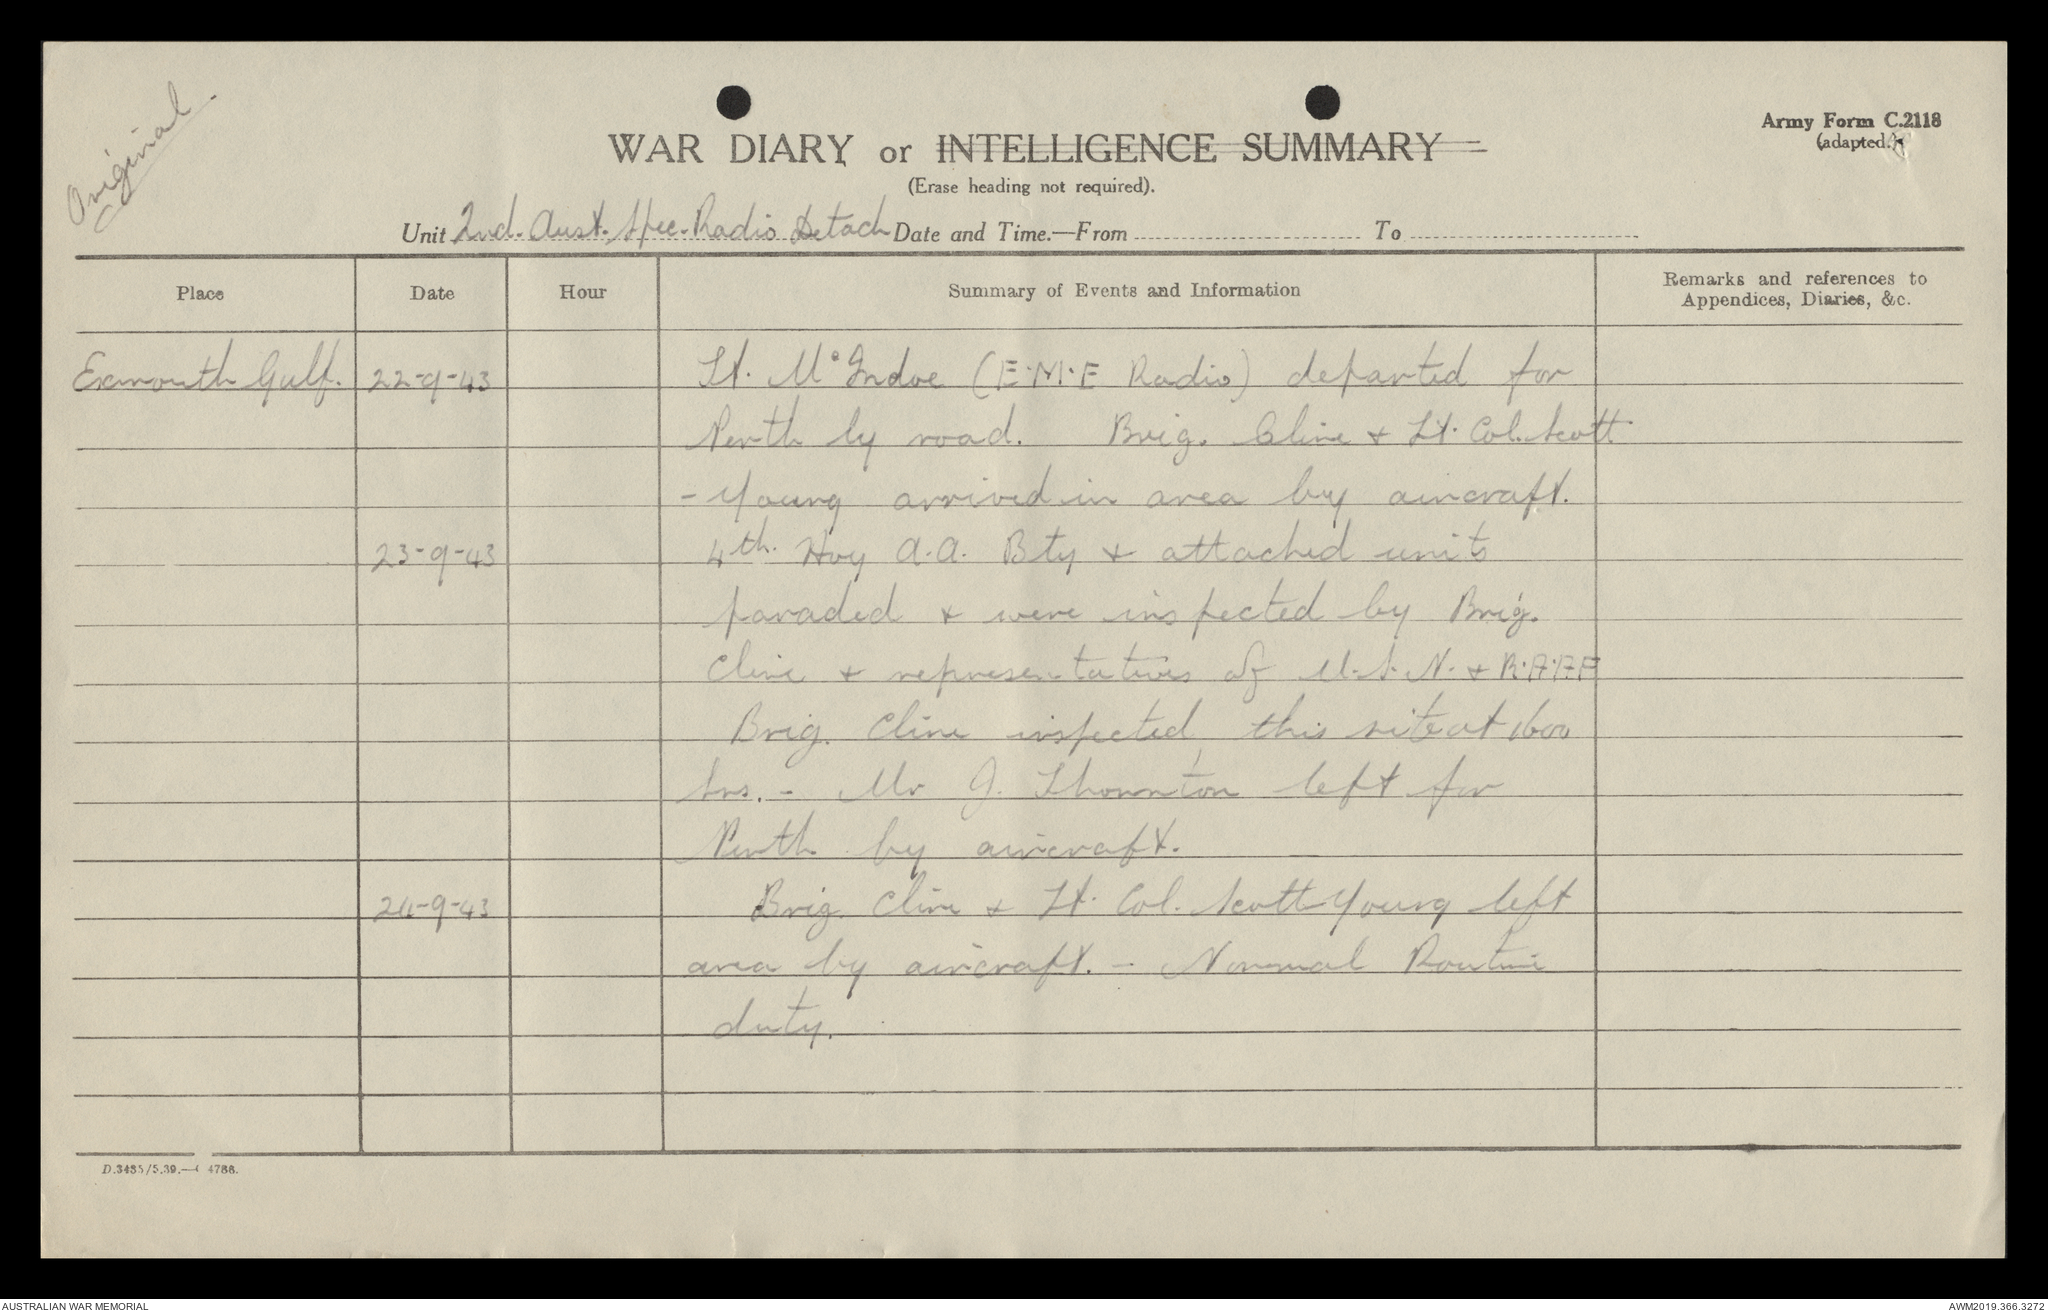 Original.
WAR DIARY or INTELLIGENCE SUMMARY
Army Form C.2118
(adapted.)
(Erase heading not required).
Unit 2nd. Aust. Spec. Radio Detach Date and Time.—From To
Place Date Hour Summary of Events and Information Remarks and references to
Appendices, Diaries, &c.
Exmouth Gulf. 22-9-43 Lt. McIndoe (E.M.E Radio) departed for
Perth by road. Brig. Cline + Lt. Col. Scott
- Young arrived in area by aircraft.
23-9-43 4th. Hvy A.A. Bty + attached units
paraded + were inspected by Brig.
Cline + representatives of U.S.N. + R.A.A.F
Brig. Cline inspected this site at 1600
hrs. - Mr J. Thornton left for
Perth by aircraft.
24-9-43 Brig. Cline + Lt. Col. Scott Young left
area by aircraft. - Normal Routine
duty.
D.3435/5.39.— 4786.
AUSTRALIAN WAR MEMORIAL AWM2019.366.3272